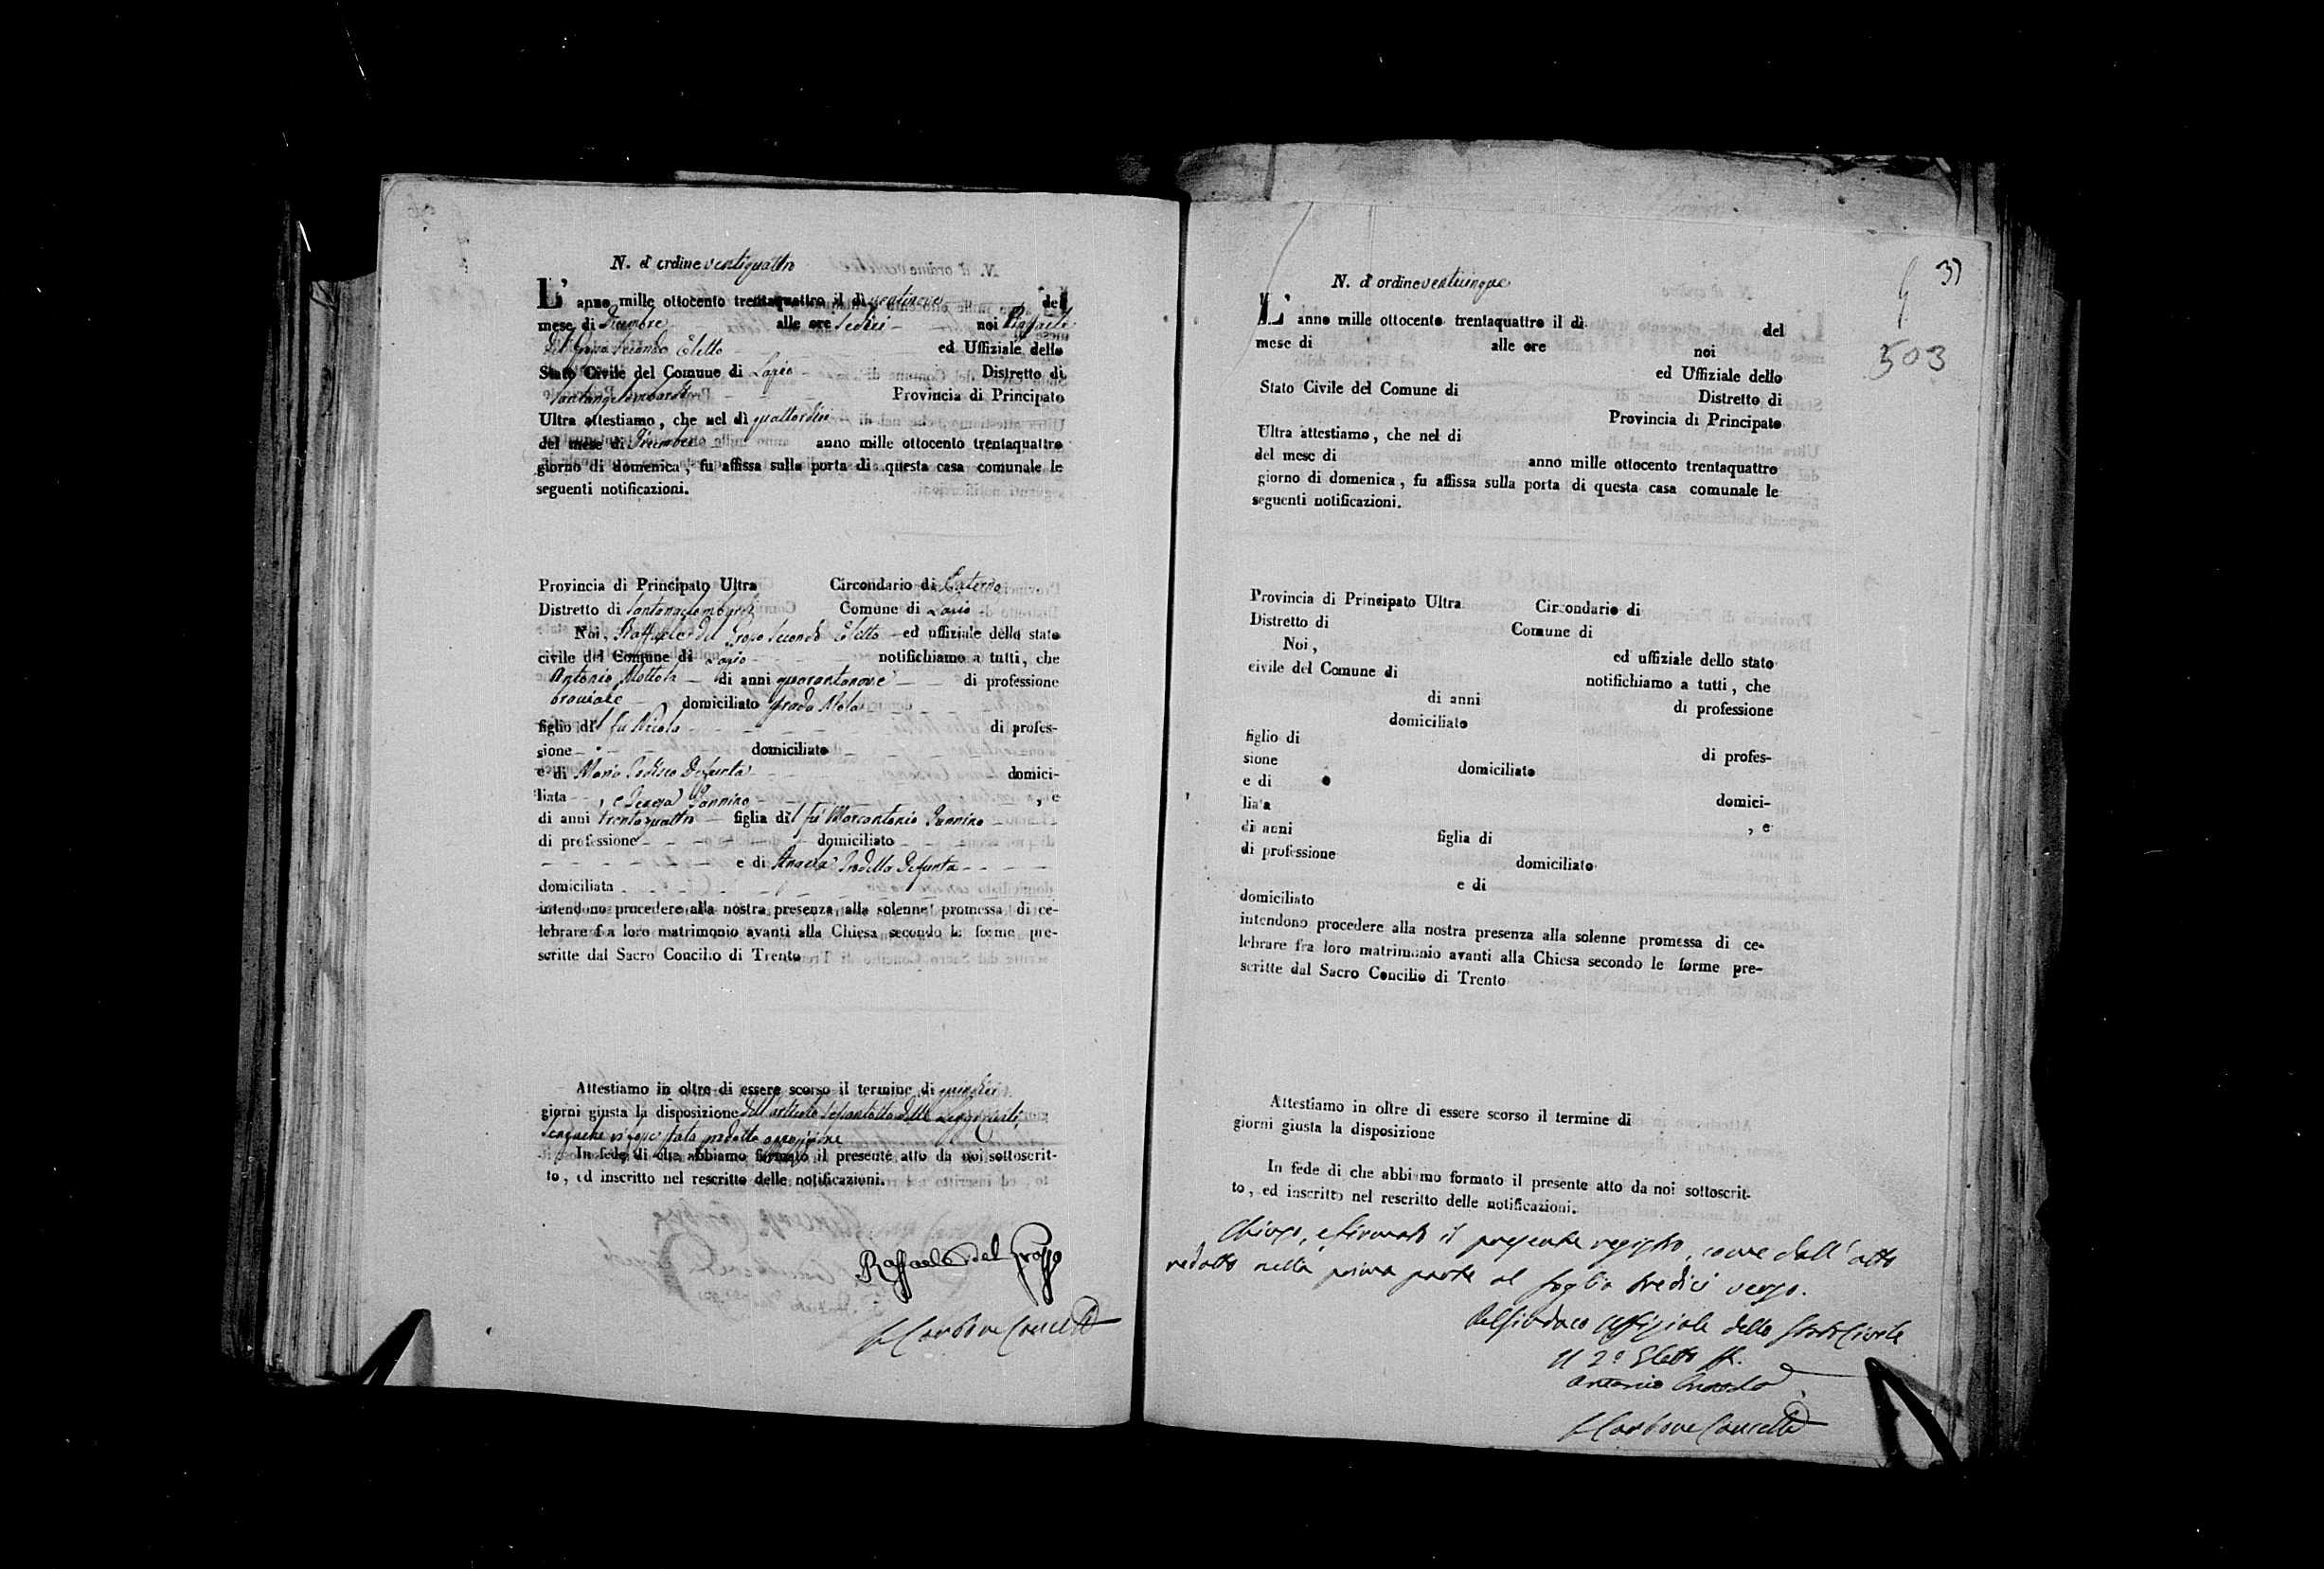 N. d'ordine ventiquattro
L' anno mille ottocento trentaquattro il dì ventinove del
mese di Dicembre alle ore sedici noi Raffaele
del Grosso secondo Eletto ed Uffiziale dello
Stato Civile del Comune di Lapio Distretto di
Santangelombardi Provincia di Principato
Ultra attestiamo, che nel dì quattordici
del mese di Dicembre anno mille ottocento trentaquattro
giorno di domenica, fu affissa sulla porta di questa casa comunale le
seguenti notificazioni.
Provincia di Principato Ultra Circondario di
Distretto di Santangelombardi Comune di Lapio
Noi, Raffaele del Grosso secondo Eletto ed uffiziale dello stato
civile del Comune di Lapio notifichiamo a tutti, che
Antonio Mottola di anni quarantanove di professione
bracciale domiciliato strada Mola
figlio del fu Nicola di profes-
sione domiciliato
e di Maria defunta domici-
liata , e Iannino , e
di anni trentaquattro figlia del fu Marcantonio Iannino
di professione domiciliato
e di Angela defunta
domiciliata
intendono procedere alla nostra presenza alla solenne promessa di ce-
lebrare fra loro matrimonio avanti alla Chiesa secondo le forme pre-
scritte dal Sacro Concilio di Trento
Attestiamo in oltre di essere scorso il termine di quindici
giorni giusta la disposizione dell'articolo delle Leggi Civili,
senza che vi fosse stata prodotta opposizione
In fede di che abbiamo formato il presente atto da noi sottoscrit-
to, ed inscritto nel rescritto delle notificazioni.
Raffaele del Grosso
Carbone
37
503
N. d'ordine venticinque
L' anno mille ottocento trentaquattro il dì del
mese di alle ore noi
ed Uffiziale dello
Stato Civile del Comune di Distretto di
Provincia di Principato
Ultra attestiamo, che nel dì
del mese di anno mille ottocento trentaquattro
giorno di domenica, fu affissa sulla porta di questa casa comunale le
seguenti notificazioni.
Provincia di Principato Ultra Circondario di
Distretto di Comune di
Noi, ed uffiziale dello stato
civile del Comune di notifichiamo a tutti, che
di anni di professione
domiciliato
figlio di di profes-
sione domiciliato
e di domici-
liata , e
di anni figlia di
di professione domiciliato
e di
domiciliato
intendono procedere alla nostra presenza alla solenne promessa di ce-
lebrare fra loro matrimonio avanti alla Chiesa secondo le forme pre-
scritte dal Sacro Concilio di Trento
Attestiamo in oltre di essere scorso il termine di
giorni giusta la disposizione
In fede di che abbiamo formato il presente atto da noi sottoscrit-
to, ed inscritto nel rescritto delle notificazioni.
Chiuso, e firmato il presente registro, come dall'atto
redatto nella prima parte al foglio tredici verso.
Pel Sindaco Uffiziale dello Stato Civile
Il 2º Eletto ff.
Antonio
Carbone